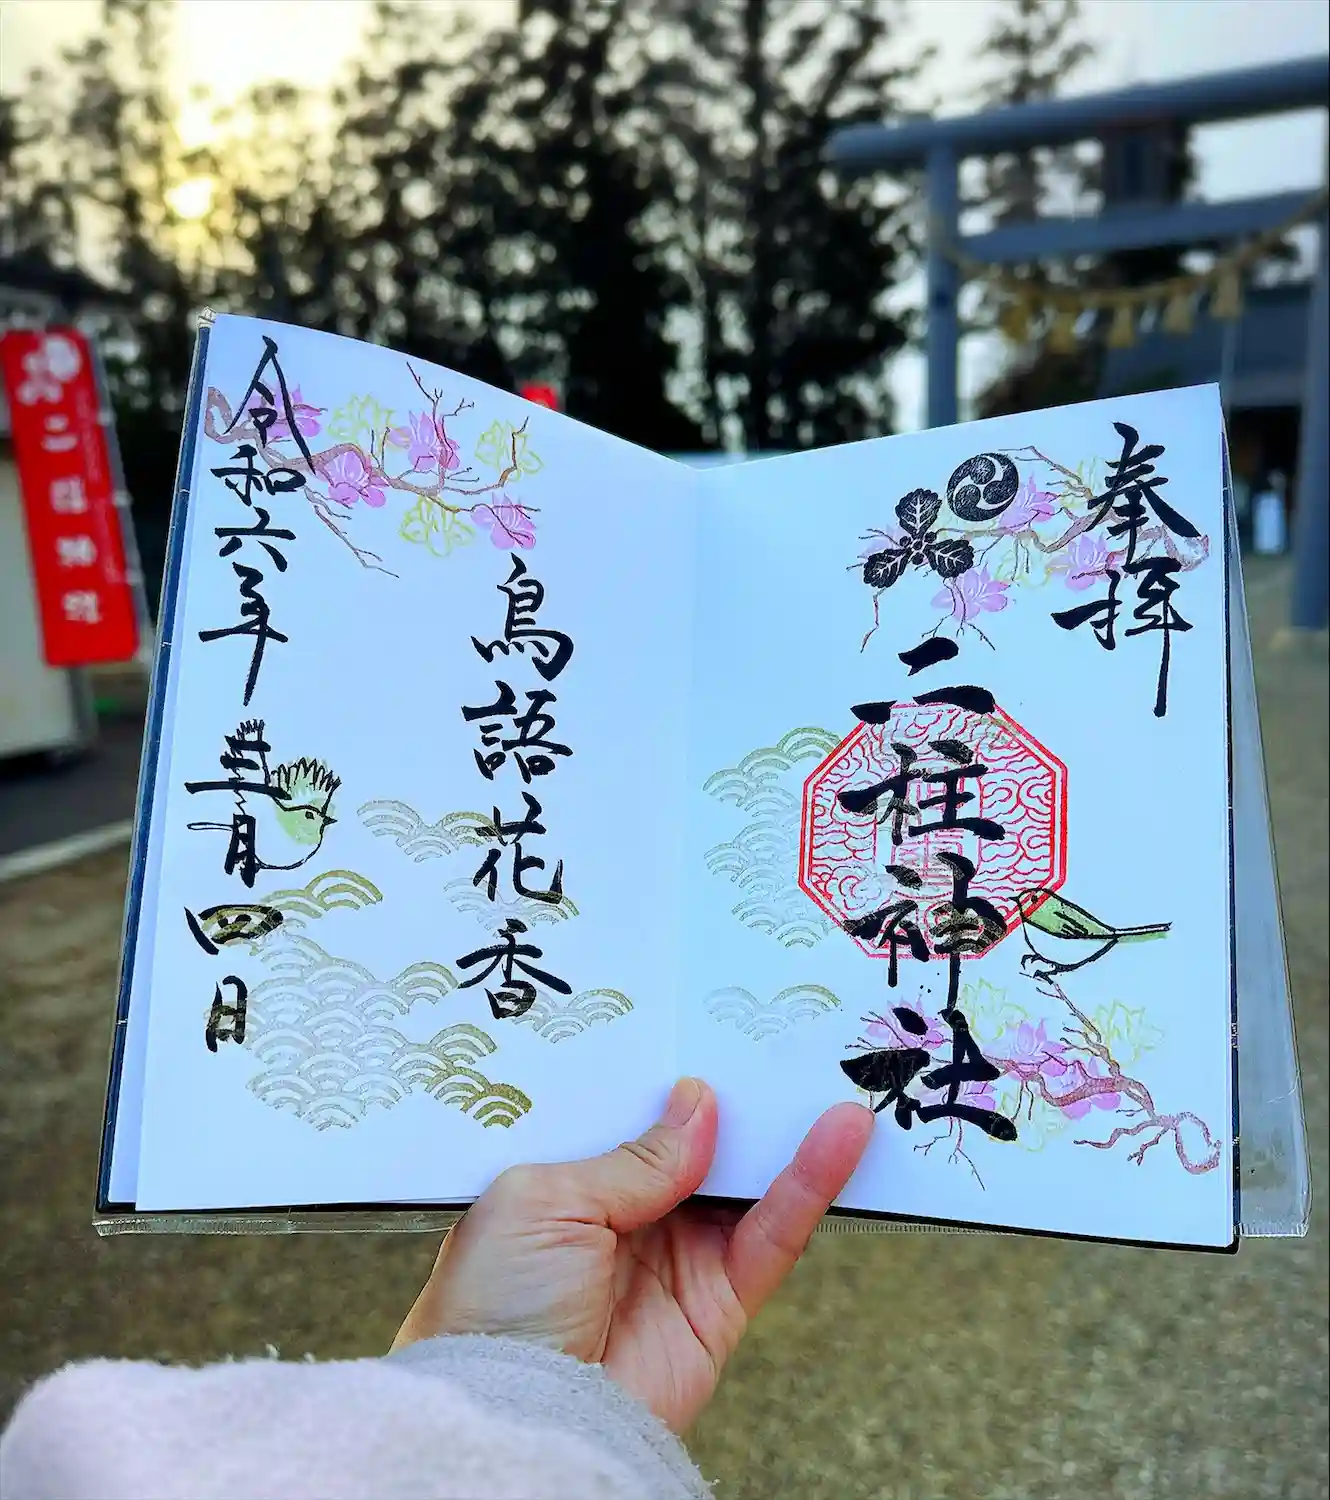 奉拝
二柱神社
鳥語花香
令和六年
四日
二柱神社